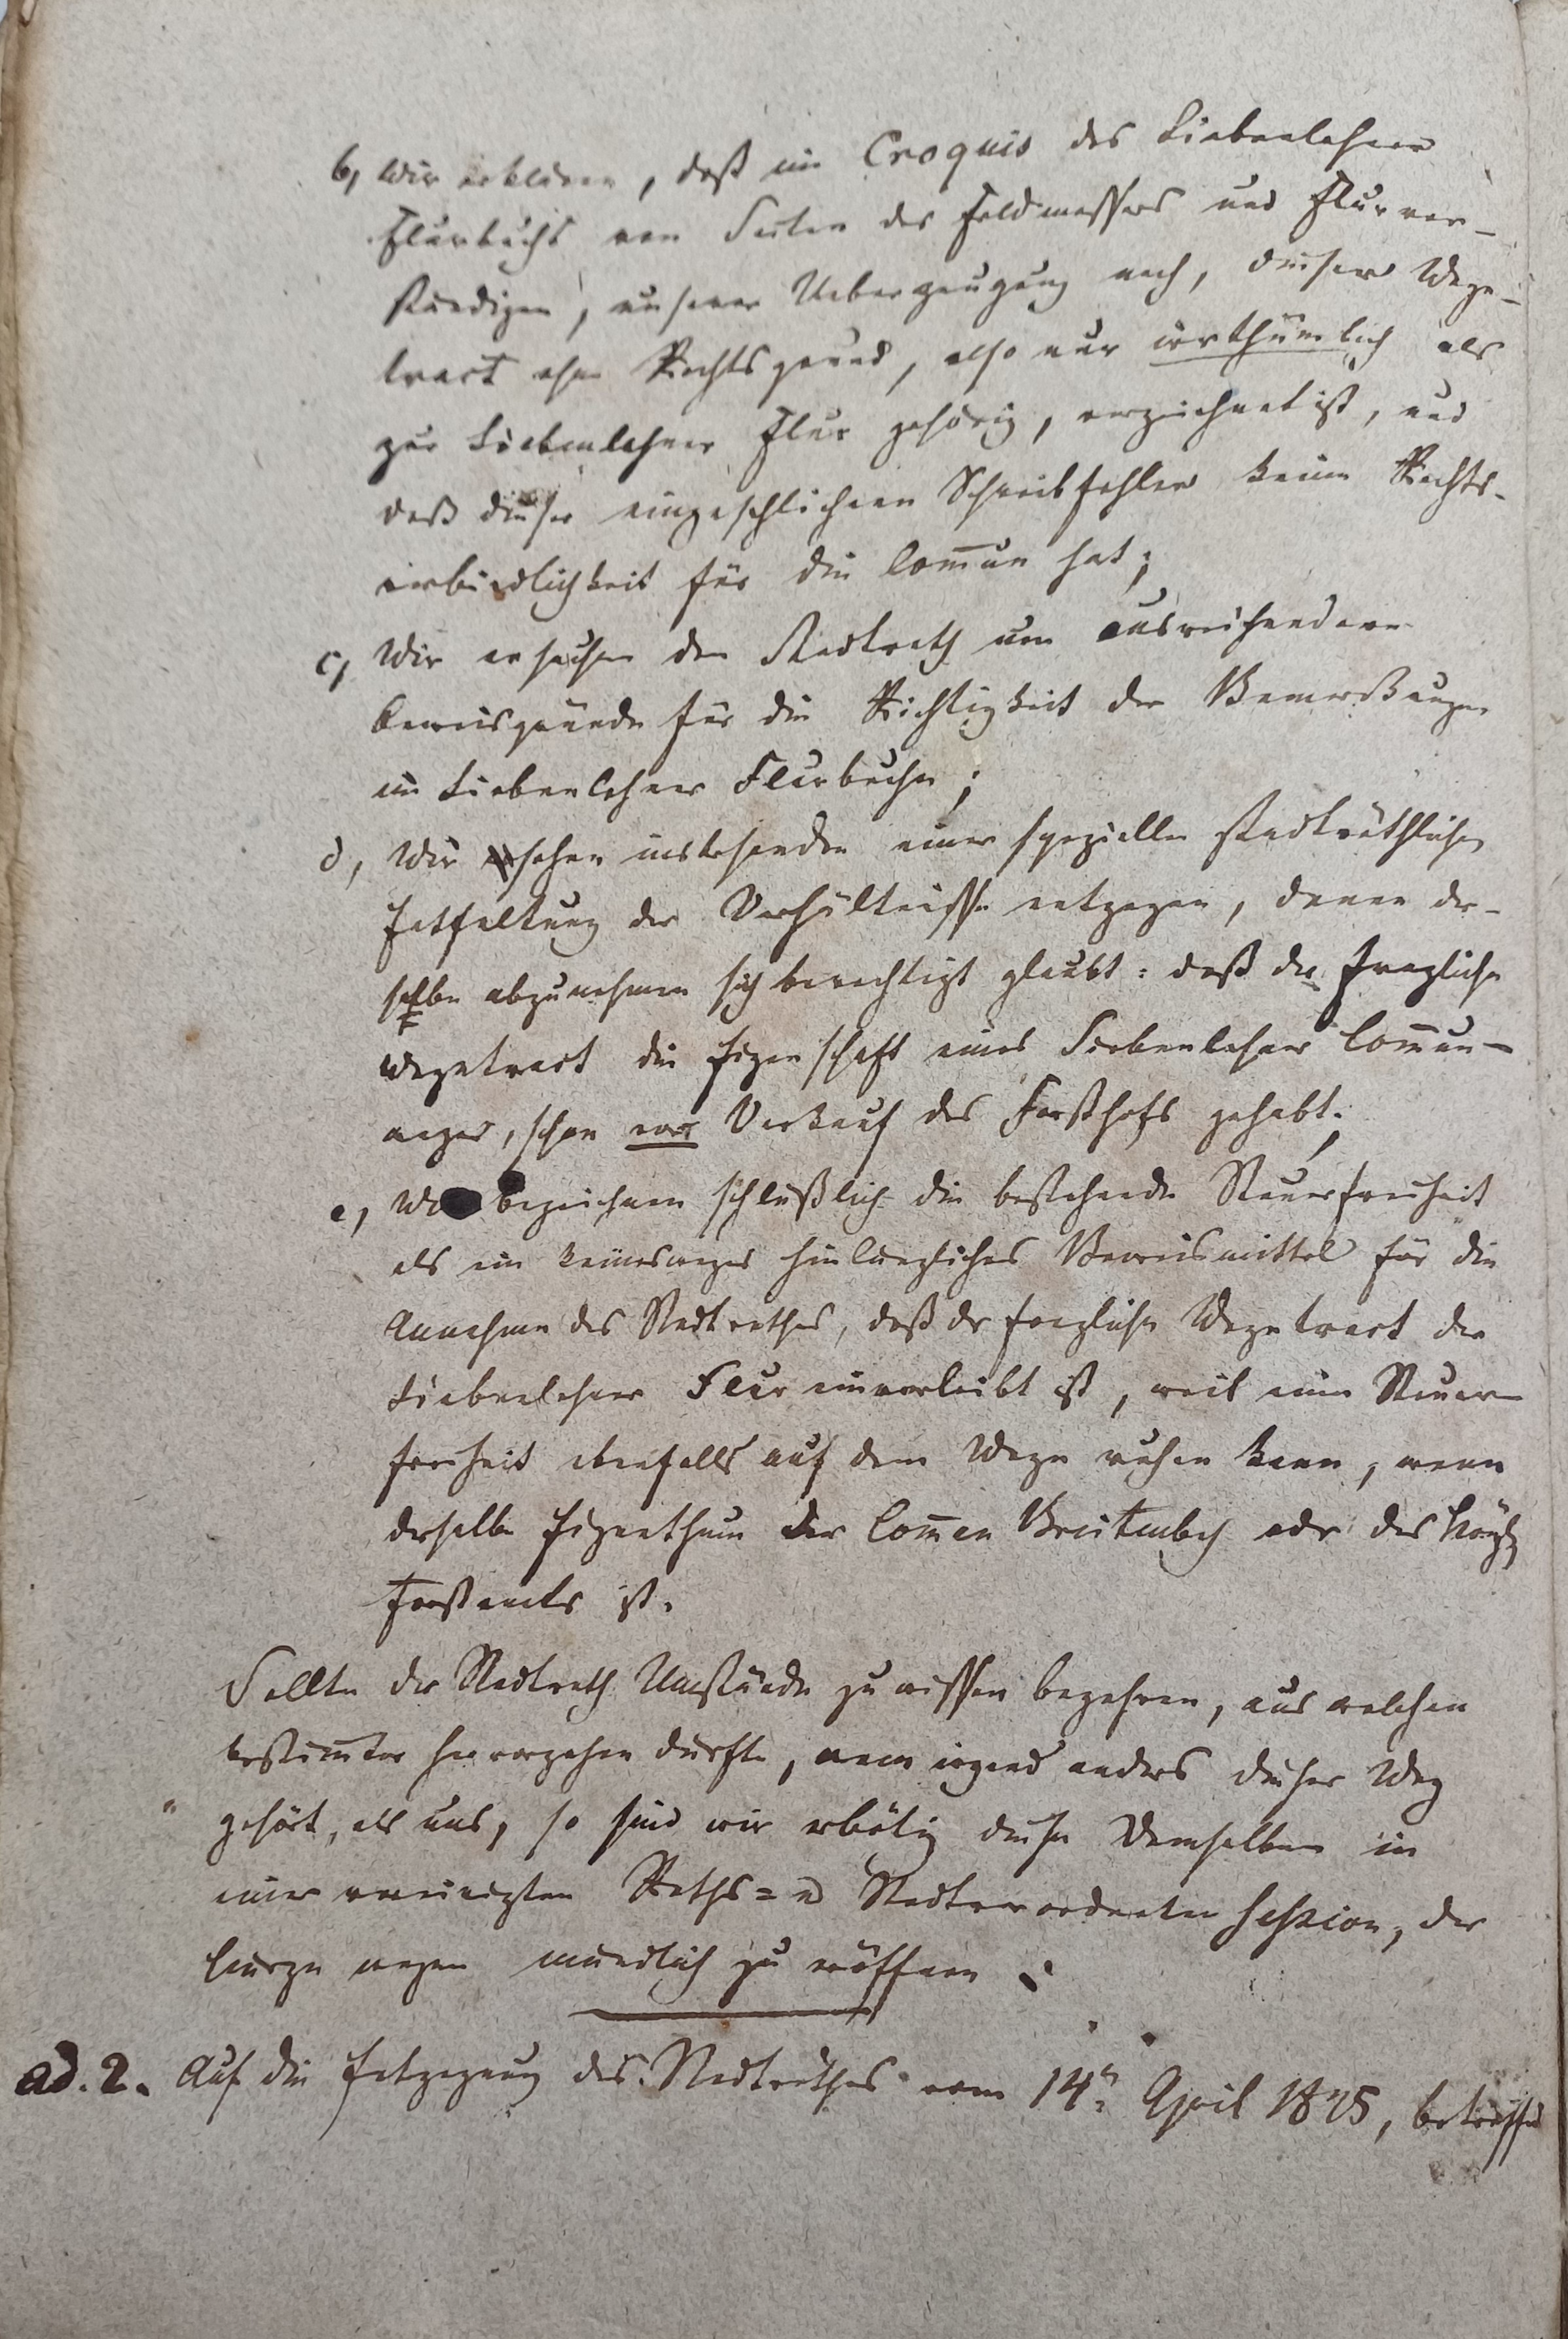 b, Wir erklären, daß im Croquis des Siebenlehner
Flurbuchs von Seiten der Feldmessers und Flurver-
ständigen, unserer Ueberzeugung nach, dieser Wege-
tract ohne Rechtsgrund, also nur irrthümlich als
zur Siebenlehner Flur gehörig, verzeichnet ist, und
daß dieser eingeschlichenen Schreibfehler keine Rechts-
verbindlichkeit für die Com̅un hat;
c, Wir ersuchen den Stadtrath um ausreichendere
Beweisgründe für die Richtigkeit der Bemerkungen
im Siebenlehner Flurbuche;
d, Wir sehen insbesondere einer speziellen stadträthlichen
Entfaltung der Verhältnisse entgegen, denen der-
selbe abzunehmen sich berechtigt glaubt: daß der fragliche
Wegetract die Eigenschaft eines Siebenlehner Com̅un-
weges, schon vor Verkauf des Forsthofs gehabt;
e, bezeichnen schlüßlich die bestehende Steuerfreiheit
als ein keinesweges hinlängliches Beweismittel für die
Annahme des Stadtrathes, daß der fragliche Wegetract der
Siebenlehner Flur einverleibt ist, weil eine Steuer-
freiheit ebenfalls auf dem Wege ruhen kann, wenn
derselbe Eigenthum der Com̅un Breitenbach oder des Königl
Forstamts ist.
Sollte der Stadtrath Umstände zu wissen begehren, aus welchen
bestim̅ter hervorgehen dürfte, wem irgend anders dieser Weg
gehört, als uns, so sind wir erbötig diese Demselben in
einer vereinigten Raths= u Stadtverordneten Session, der
Kürze wegen mündlich zu eröffnen.
ad. 2. Auf die Entgegnung des Stadtrathes vom 14n April 1845, betreffend